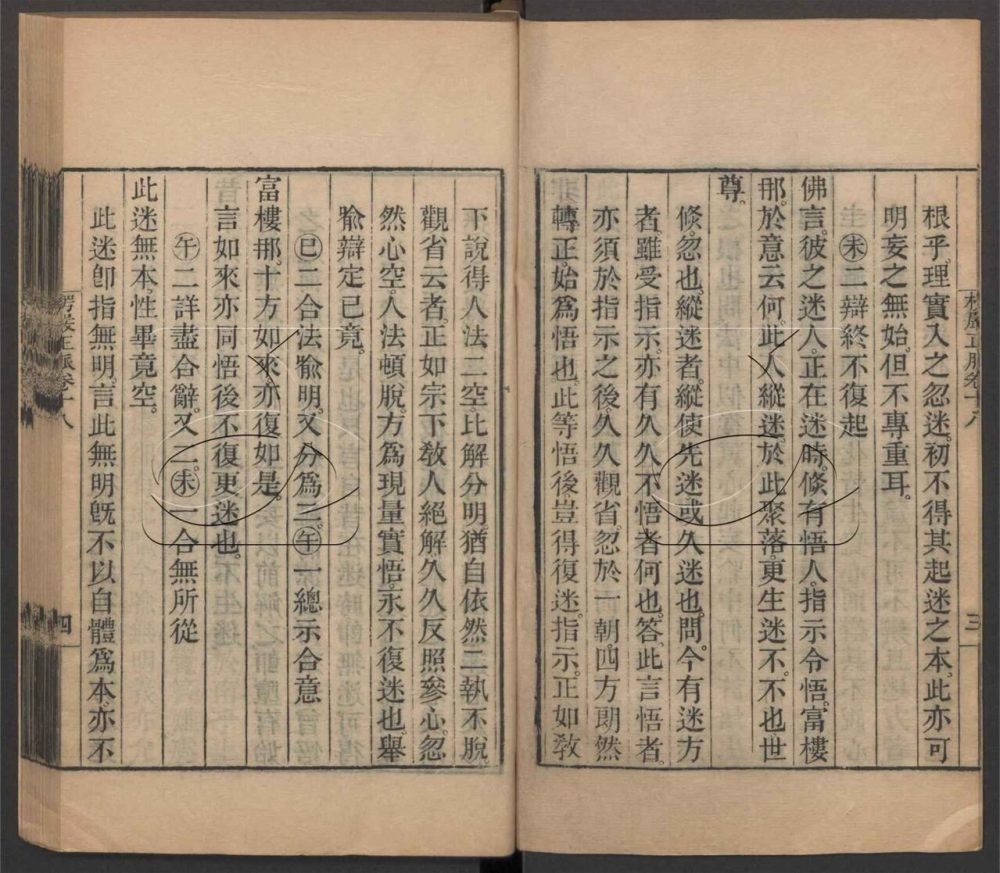 根乎。理實入之忽迷。初不得其起迷之本。此亦可
明妄之無始。但不專重耳。
㊍二辯終不復起
佛言。彼之迷人。正在迷時。倐有悟人。指示令悟。富樓
那。於意云何。此人縱迷。於此聚落。更生迷不。不也世
尊。
倐忽也。縱迷者。縱使先迷或久迷也。問。今有迷方
者。雖受指示。亦有久久不悟者何也。答。此言悟者。
亦須於指示之後。久久觀省。忽於一朝。四方朗然
轉正。始爲悟也。此等悟後。豈得復迷。指示。正如敎
三
下說得人法二空。比解分明。猶自依然二執不脫。
觀省云者。正如宗下敎人絕解久久反照參心。忽
然心空。人法頓脫。方爲現量實悟。永不復迷也。舉
喩辯定已竟。
㊁二合法喩明。又分爲三。㊋一總示合意
富樓那。十方如來。亦復如是。
言如來亦同悟後不復更迷也。
午二詳盡合辭。又二。未一合無所從
此迷無本。性畢竟空。
此迷卽指無明。言此無明旣不以自體爲本。亦不
楞嚴正脈卷十八
四